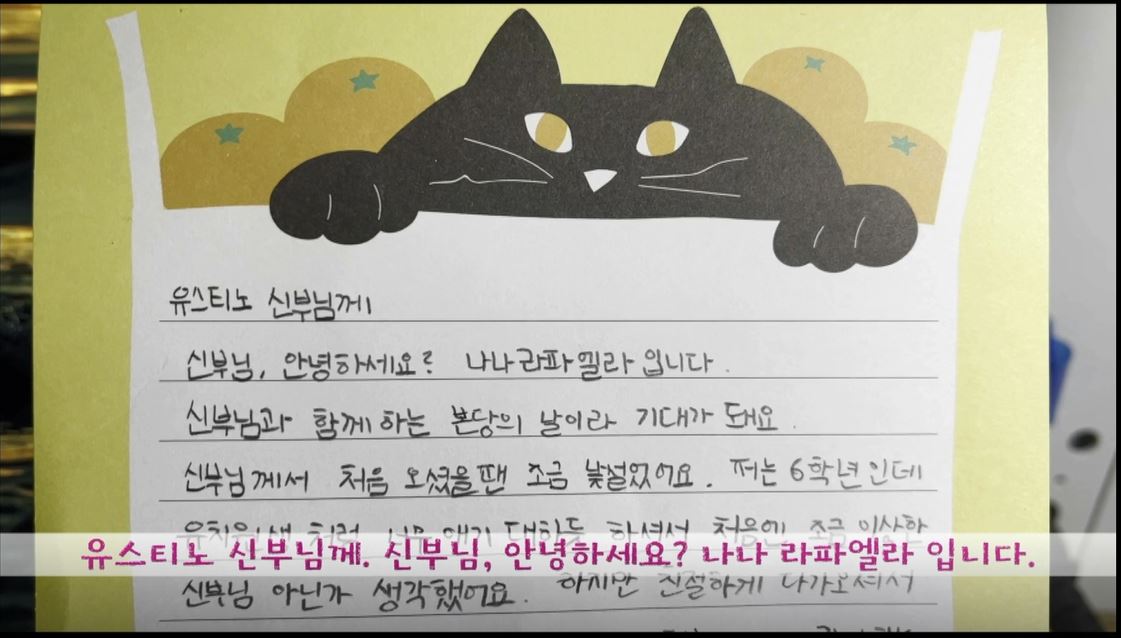 유스티노 신부님께
신부님, 안녕하세요? 나나 라파엘라 입니다.
신부님과 함께 하는 본당의 날이라 기대가 돼요.
신부님께서 처음 오셨을땐 조금 낯설었어요. 저는 6학년인데
유치원생 처럼 너무 애기 대하듯 하셔서 처음엔 조금 이상한
유스티노 신부님께. 신부님, 안녕하세요? 나나 라파엘라 입니다.
신부님 아닌가 생각했어요. 하지만 친절하게 다가오셔서